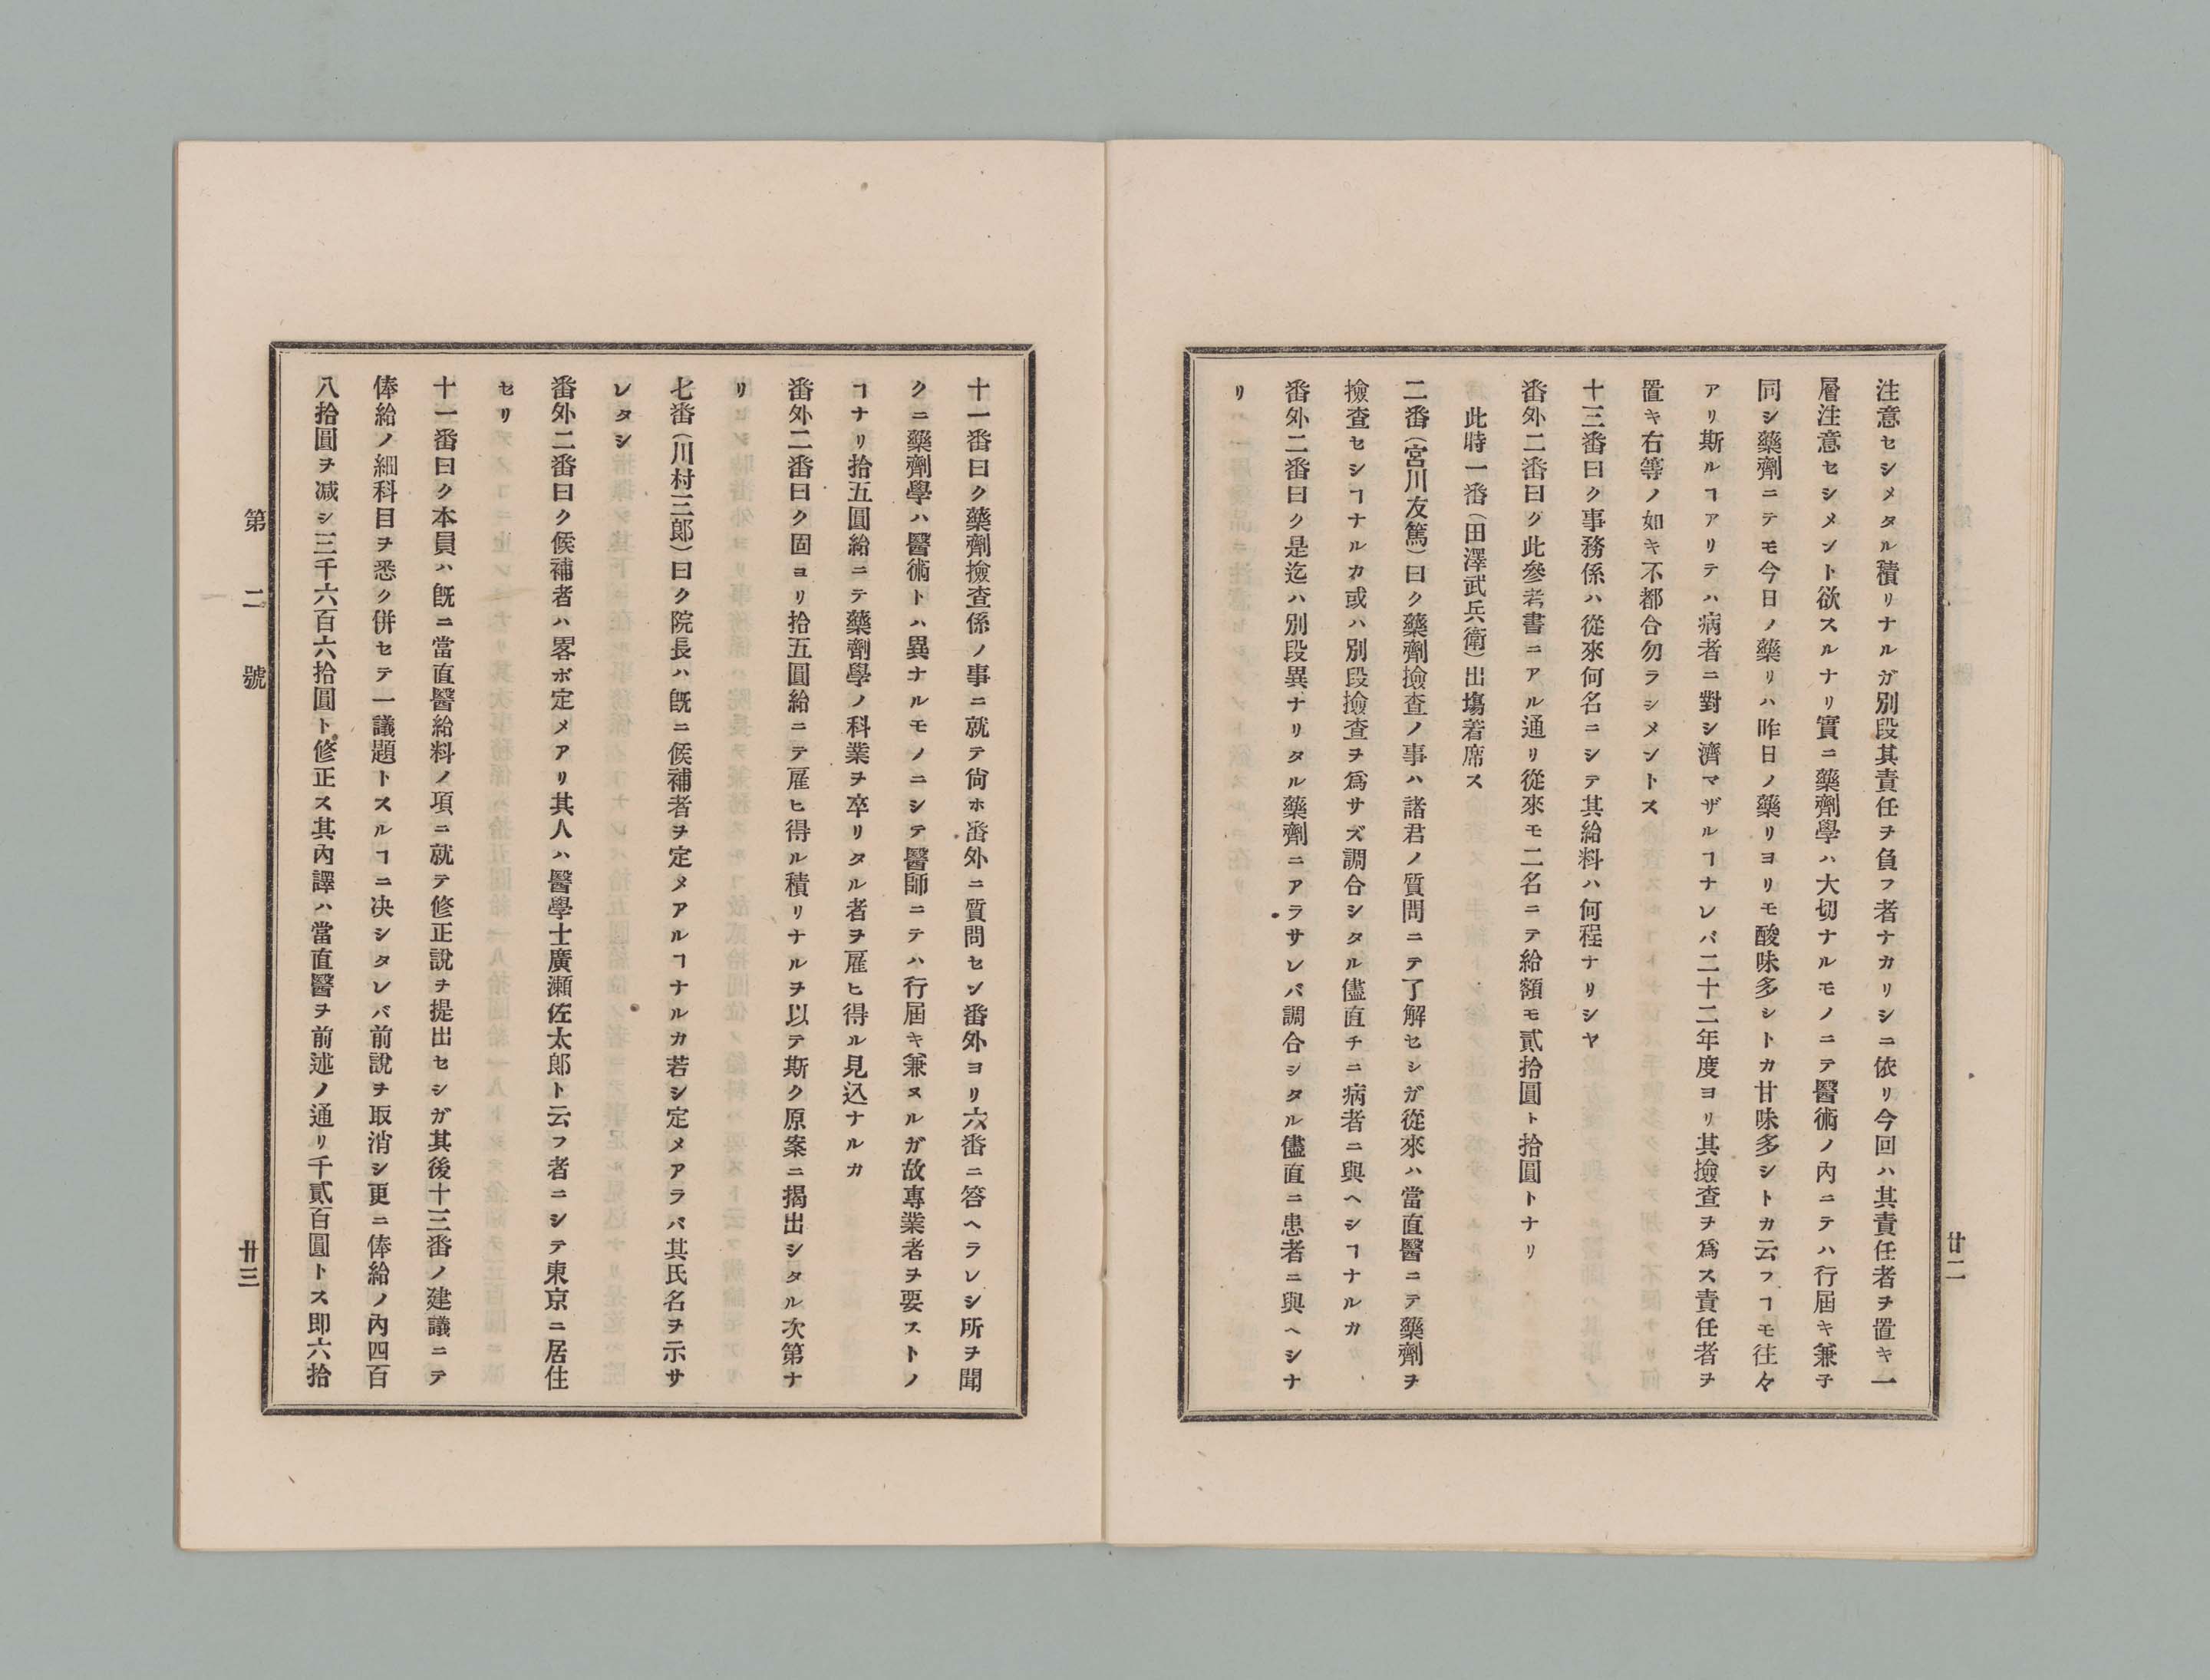 注意セシメタル積リナルガ別段其責任ヲ負フ者ナカリシニ依リ今回ハ其責任者ヲ置キ一
層注意セシメント欲スルナリ實ニ藥劑學ハ大切ナルモノニテ醫術ノ內ニテハ行屆キ兼子
同シ藥劑ニテモ今日ノ藥リハ昨日ノ藥リヨリモ酸味多シトカ甘味多シトカ云フヿモ往々
アリ斯ルヿアリテハ病者ニ對シ濟マザルヿナレバ二十二年度ヨリ其撿查ヲ爲ス責任者ヲ
置キ右等ノ如キ不都合勿ラシメントス
十三番曰ク事務係ハ從來何名ニシテ其給料ハ何程ナリシヤ
番外二番曰ク此參考書ニアル通リ從來モ二名ニテ給額モ貳拾圓ト拾圓トナリ
此時一番(田澤武兵衛)出塲着席ス
二番(宮川友篤)曰ク藥劑撿查ノ事ハ諸君ノ質問ニテ了解セシガ從來ハ當直醫ニテ藥劑ヲ
撿查セシヿナルカ或ハ別段撿查ヲ爲サズ調合シタル儘直チニ病者ニ與ヘシヿナルカ
番外二番曰ク是迄ハ別段異ナリタル藥劑ニアラサレバ調合シタル儘直ニ患者ニ與ヘシナ
リ
廿二
十一番曰ク藥劑撿查係ノ事ニ就テ尙ホ番外ニ質問セン番外ヨリ六番ニ答ヘラレシ所ヲ聞
クニ藥劑學ハ醫術トハ異ナルモノニシテ醫師ニテハ行屆キ兼ヌルガ故專業者ヲ要ストノ
ヿナリ拾五圓給ニテ藥劑學ノ科業ヲ卒リタル者ヲ雇ヒ得ル見込ナルカ
番外二番曰ク固ヨリ拾五圓給ニテ雇ヒ得ル積リナルヲ以テ斯ク原案ニ揭出シタル次第ナ
リ
七番(川村三郞)曰ク院長ハ旣ニ候補者ヲ定メアルヿナルカ若シ定メアラバ其氏名ヲ示サ
レタシ
番外二番曰ク候補者ハ畧ボ定メアリ其人ハ醫學士廣瀨佐太郞ト云フ者ニシテ東京ニ居住
セリ
十一番曰ク本員ハ旣ニ當直醫給料ノ項ニ就テ修正說ヲ提出セシガ其後十三番ノ建議ニテ
俸給ノ細科目ヲ悉ク併セテ一議題トスルヿニ决シタレバ前說ヲ取消シ更ニ俸給ノ內四百
八拾圓ヲ减シ三千六百六拾圓ト修正ス其內譯ハ當直醫ヲ前述ノ通リ千貳百圓トス即六拾
第二號
廿三